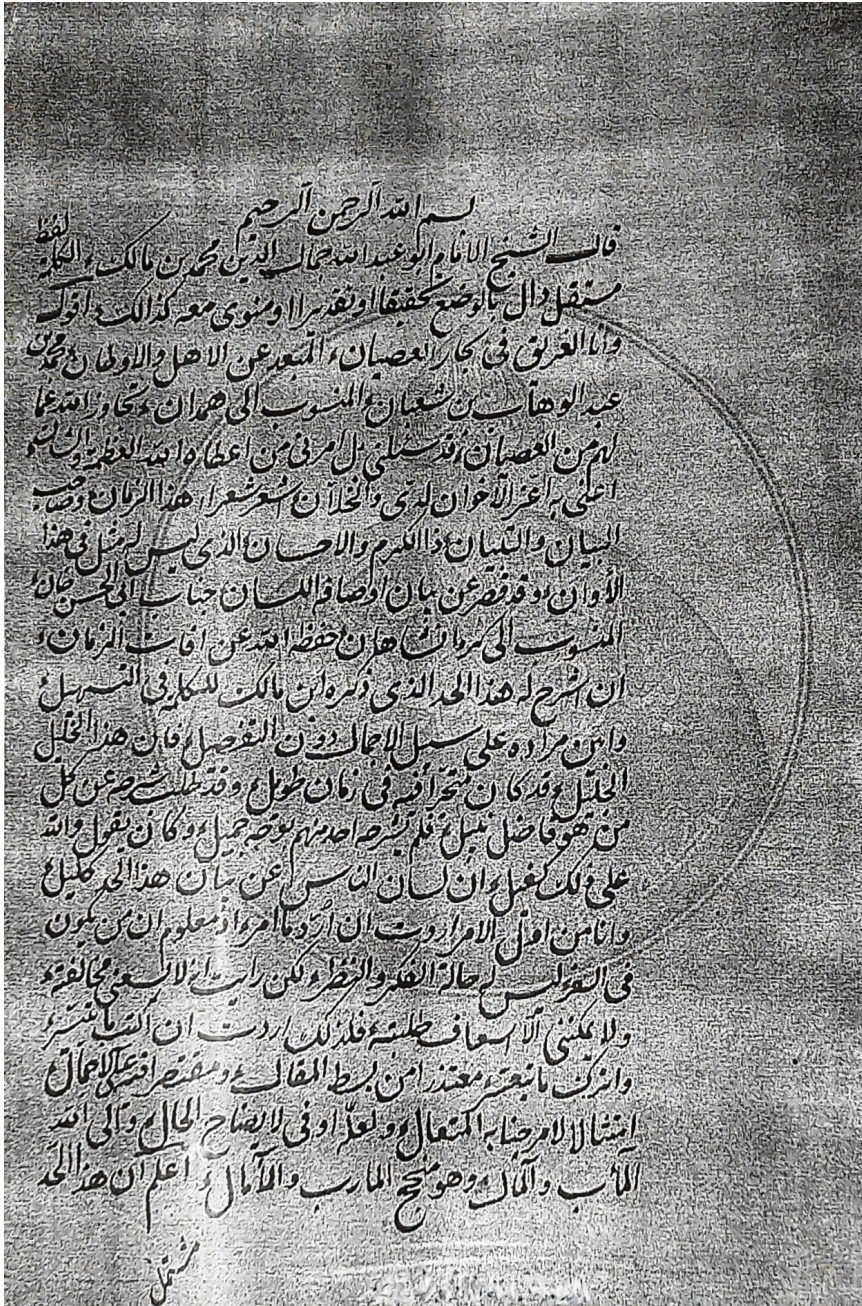 بسم الله الرحمن الرحيم
قال الشيخ الامام ابو عبد الله جمال الدين محمد بن مالك، الكلمة لفظ
مستقل دال بالوضع تحقيقا او تقديرا او منوى معه كذالك، اقول
وانا الغريق فى بحار العصيان، المتبعد عن الاهل والاوطان، محمد بن
عبد الوهاب بن شعبان، المنسوب الى همدان، تجاوز الله عما
لهم من العصيان، قد سئلنى بل امرنى من اعطاه الله العظمة
اعنى به اعز الاخوان لدى والخلان اشعر شعراء هذا الزمان، وصاحب
البيان والتبيان، ذا الكرم والاحسان، الذى ليس له مثل فى هذا
الأوان، وقد قصر عن بيان اوصافه اللسان، جناب ابى الحسن خان،
المنسوب الى كرمان شاهان، حفظه الله عن افات الزمان،
ان اشرح له هذا الحد الذى ذكره ابن مالك للكلمة فى التسهيل،
وابين مراده على سبيل الاجمال دون التفصيل، فان هذا الخليل
الجليل، قد كان متحرا فيه فى زمان طويل، وقد طلب شرحه عن كل
من هو فاضل نبيل، فلم يشرحه احد منهم بوجه جميل، وكان يقول والله
على ذلك كفيل، ان لسان الناس عن بيان هذا الحد كليل،
وانا من اول الامر اردت ان أرد ما امر، اذ معلوم ان من يكون
فى السفر ليس له حالة الفكر والنظر، لكن رايت انه لا يسعنى مخالفته،
ولا يمكننى الا اسعاف طلبته، فلذلك اردت ان اكتب ما تيسر،
واترك ما تعسر، معتذرا من بسط المقال، ومقتصرا فيه على الاجمال،
امتثالا لامر جنابه المتعال، ولعله اوفى لايضاح الحال، والى الله
المآب والمآل، وهو منجح المارب والآمال، اعلم ان هذا الحد
مشتمل